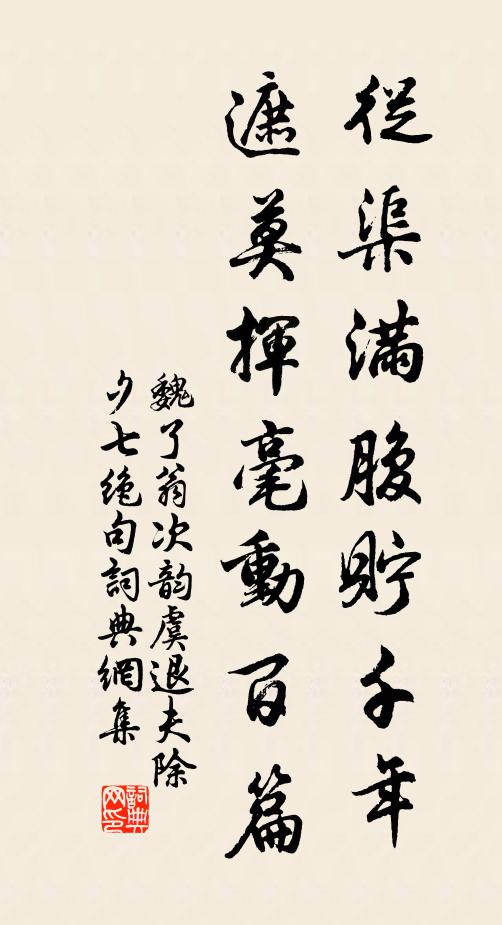 從渠滿腹貯千年
遮莫揮毫動百篇
魏了翁次韵虞退夫除
夕七絕句詞典網集
詞典網印